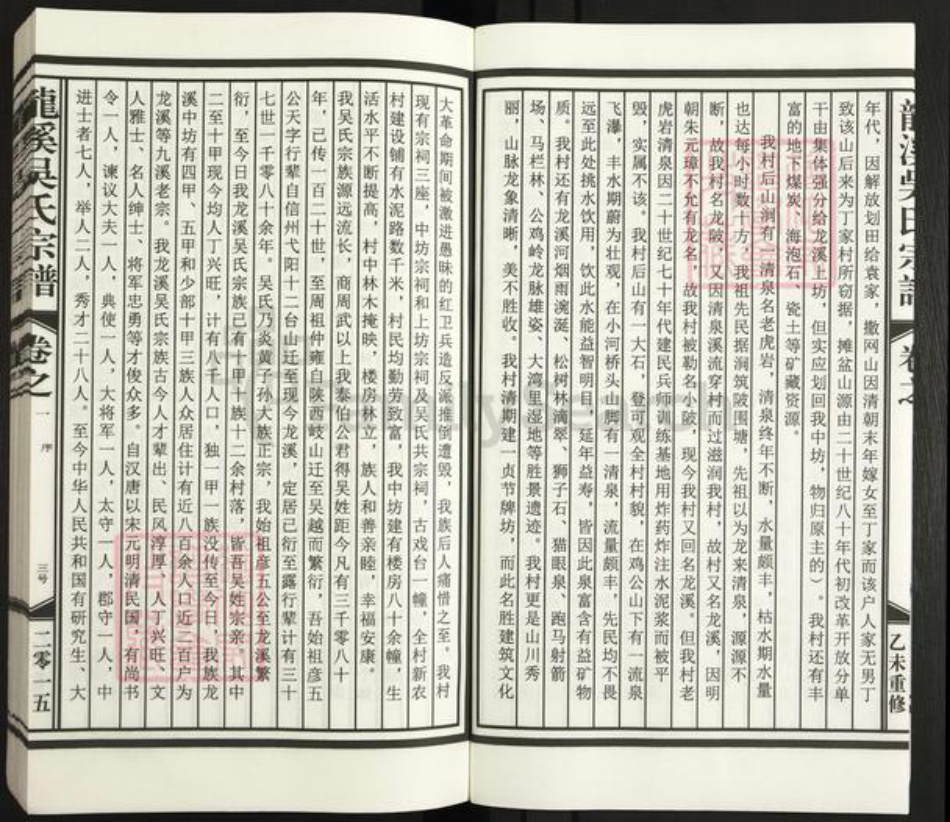 年代，因解放划田给袁家，撤网山因清朝末年嫁女至丁家而该户人家无男丁
致该山后来为丁家村所窃据，摊盆山源由二十世纪八十年代初改革开放分单
干由集体强分给龙溪上坊，但实应划回我中坊，物归原主的）。我村还有丰
富的地下煤炭、海泡石、瓷土等矿藏资源。
我村后山涧有一清泉名老虎岩，清泉终年不断，水量颇丰，枯水期水量
也达每小时数十方，我祖先民据涧筑陂围塘，先祖以为龙来清泉，源源不
断，故我村名龙陂，又因清泉溪流穿村而过滋润我村，故村又名龙溪，因明
朝朱元璋不允有龙名，故我村被勒名小陂，现今我村又回名龙溪。但我村老
虎岩清泉因二十世纪七十年代建民兵师训练基地用炸药炸注水泥浆而被平
毁，实属不该。我村后山有一大石，登可观全村村貌，在鸡公山下有一流泉
飞瀑，丰水期蔚为壮观，在小河桥头山脚有一清泉，流量颇丰，先民均不畏
远至此处挑水饮用，饮此水能益智明目，延年益寿，皆因此泉富含有益矿物
质。我村还有龙溪河烟雨漪涎、松树林滴翠、狮子石、猫眼泉、跑马射箭
场、马栏林、公鸡岭龙脉雄姿、大湾里湿地等胜景遗迹。我村更是山川秀
丽，山脉龙象清晰，美不胜收。我村清期建一贞节牌坊，而此名胜建筑文化
乙未重修
大革命期间被激进愚昧的红卫兵造反派推倒遭毁，我族后人痛惜之至。我村
现有宗祠三座，中坊宗祠和上坊宗祠及吴氏共宗祠，古戏台一幢，全村新农
村建设铺有水泥路数千米，村民均勤劳致富，我中坊建有楼房八十余幢，生
活水平不断提高，村中林木掩映，楼房林立，族人和善亲睦，幸福安康。
我吴氏宗族源远流长，商周武以上我泰伯公君得吴姓距今凡有三千零八十
年，已传一百二十世，至周祖仲雍自陕西岐山迁至吴越而繁衍，吾始祖彦五
公天字行辈自信州弋阳十二台山迁至现今龙溪，定居已衍至露行辈计有三十
七世一千零八十余年。吴氏乃炎黄子孙大族正宗，我始祖彦五公至龙溪繁
衍，至今日我龙溪吴氏宗族已有十甲十族十二余村落，皆吾吴姓宗亲。其中
二至十甲现今均人丁兴旺，计有八千人口，独一甲一族没传至今日，我族龙
溪中坊有四甲、五甲和少部十甲三族人众居住计有近八百余人口近二百户为
龙溪等九溪老宗。我龙溪吴氏宗族古今人才辈出、民风淳厚、人丁兴旺、文
人雅士、名人绅士、将军忠勇等才俊众多。自汉唐以宋元明清民国，有尚书
令一人，谏议大夫一人，典使一人，大将军一人，太守一人，郡守一人，中
进士者七人，举人二人，秀才二十八人。至今中华人民共和国有研究生、大
龍溪吴氏宗譜
卷之一
序
三号
二零一五